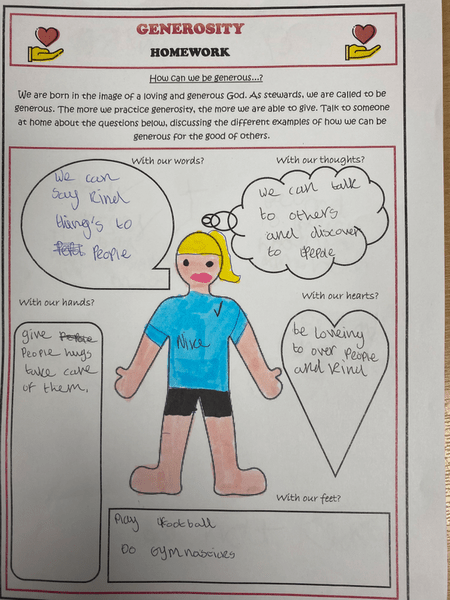 GENEROSITY
HOMEWORK
How can we be generous...?
We are born in the image of a loving and generous God. As stewards, we are called to be
generous. The more we practice generosity, the more we are able to give. Talk to someone
at home about the questions below, discussing the different examples of how we can be
generous for the good of others.
With our words?
we can
say kind
thing's to
People
With our thoughts?
we can talk
to others
and discover
to
With our hands?
give
People hugs
take care
of them.
Nike
With our hearts?
be loveing
to over People
and kind
With our feet?
Play football
Do gymnastices